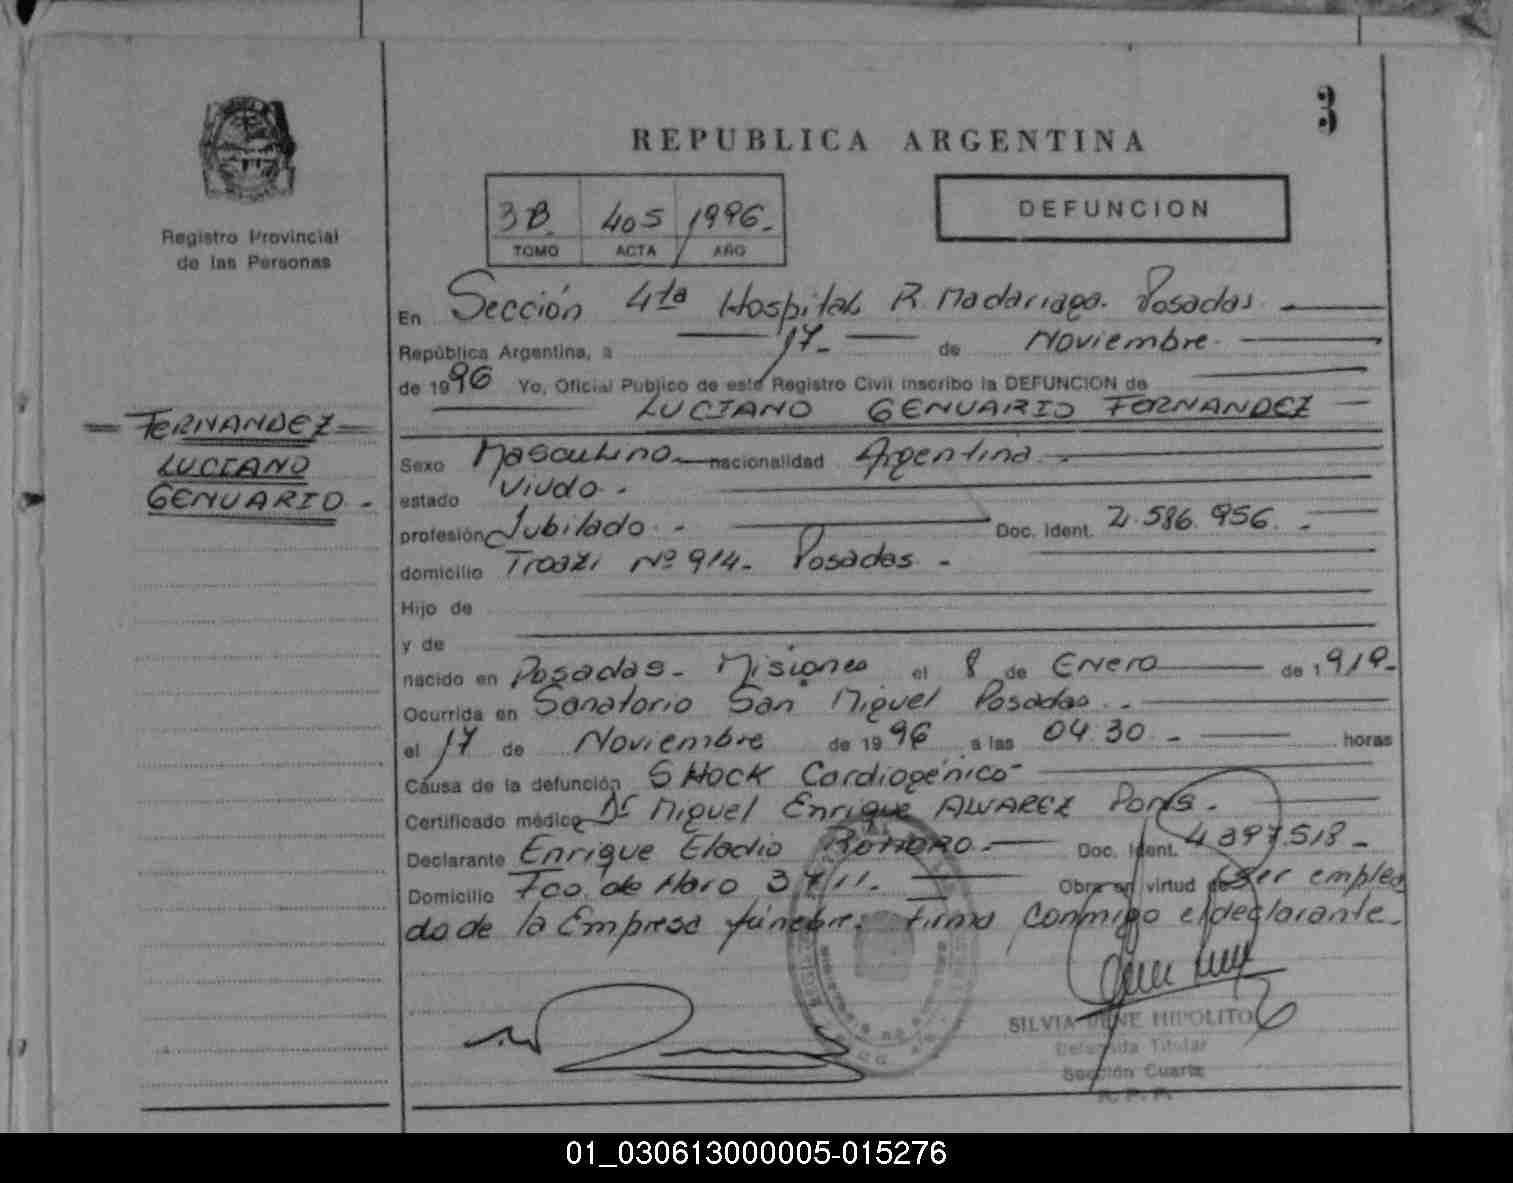 3
REPUBLICA ARGENTINA
Registro Provincial
de las Personas
3B. 405 1996.
TOMO ACTA AÑO
DEFUNCION
En Sección 4ta Hospital R. Madariaga. Posadas
República Argentina, a 17 de Noviembre
de 1996 Yo, Oficial Público de este Registro Civil inscribo la DEFUNCION de
LUCIANO GENUARIO FERNANDEZ
FERNANDEZ
LUCIANO
GENUARIO
Sexo Masculino nacionalidad Argentina
estado Viudo.
profesión Jubilado. Doc. Ident. 2.586.956.
domicilio Nº 914. Posadas
Hijo de
y de
nacido en Posadas. Misiones el 8 de Enero de 1919
Ocurrida en Sanatorio San Miguel Posadas.
el 17 de Noviembre de 1996 a las 04.30 horas
Causa de la defunción SHOCK Cardiogénico
Certificado médico Dr Miguel Enrique ALVAREZ Pons.
Declarante Enrique Eladio ROMERO. Doc. Ident. 4.397.518
Domicilio Fco. de Haro 3711. Obra en virtud de Ser emplea
do de la Empresa fúnebre. firma conmigo el declarante.
SILVIA IRENE HIPOLITO
Delegada Titular
Sección Cuarta
R. P. P.
01_030613000005-015276